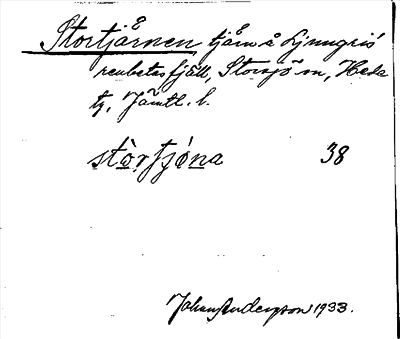 Stortjårnen tjårn å Ljungris
renbetesfjäll, Storsjö sn, Heda
tg. Jämtl. l.
stòrtjóna 38
Johan Anderzson 1933.